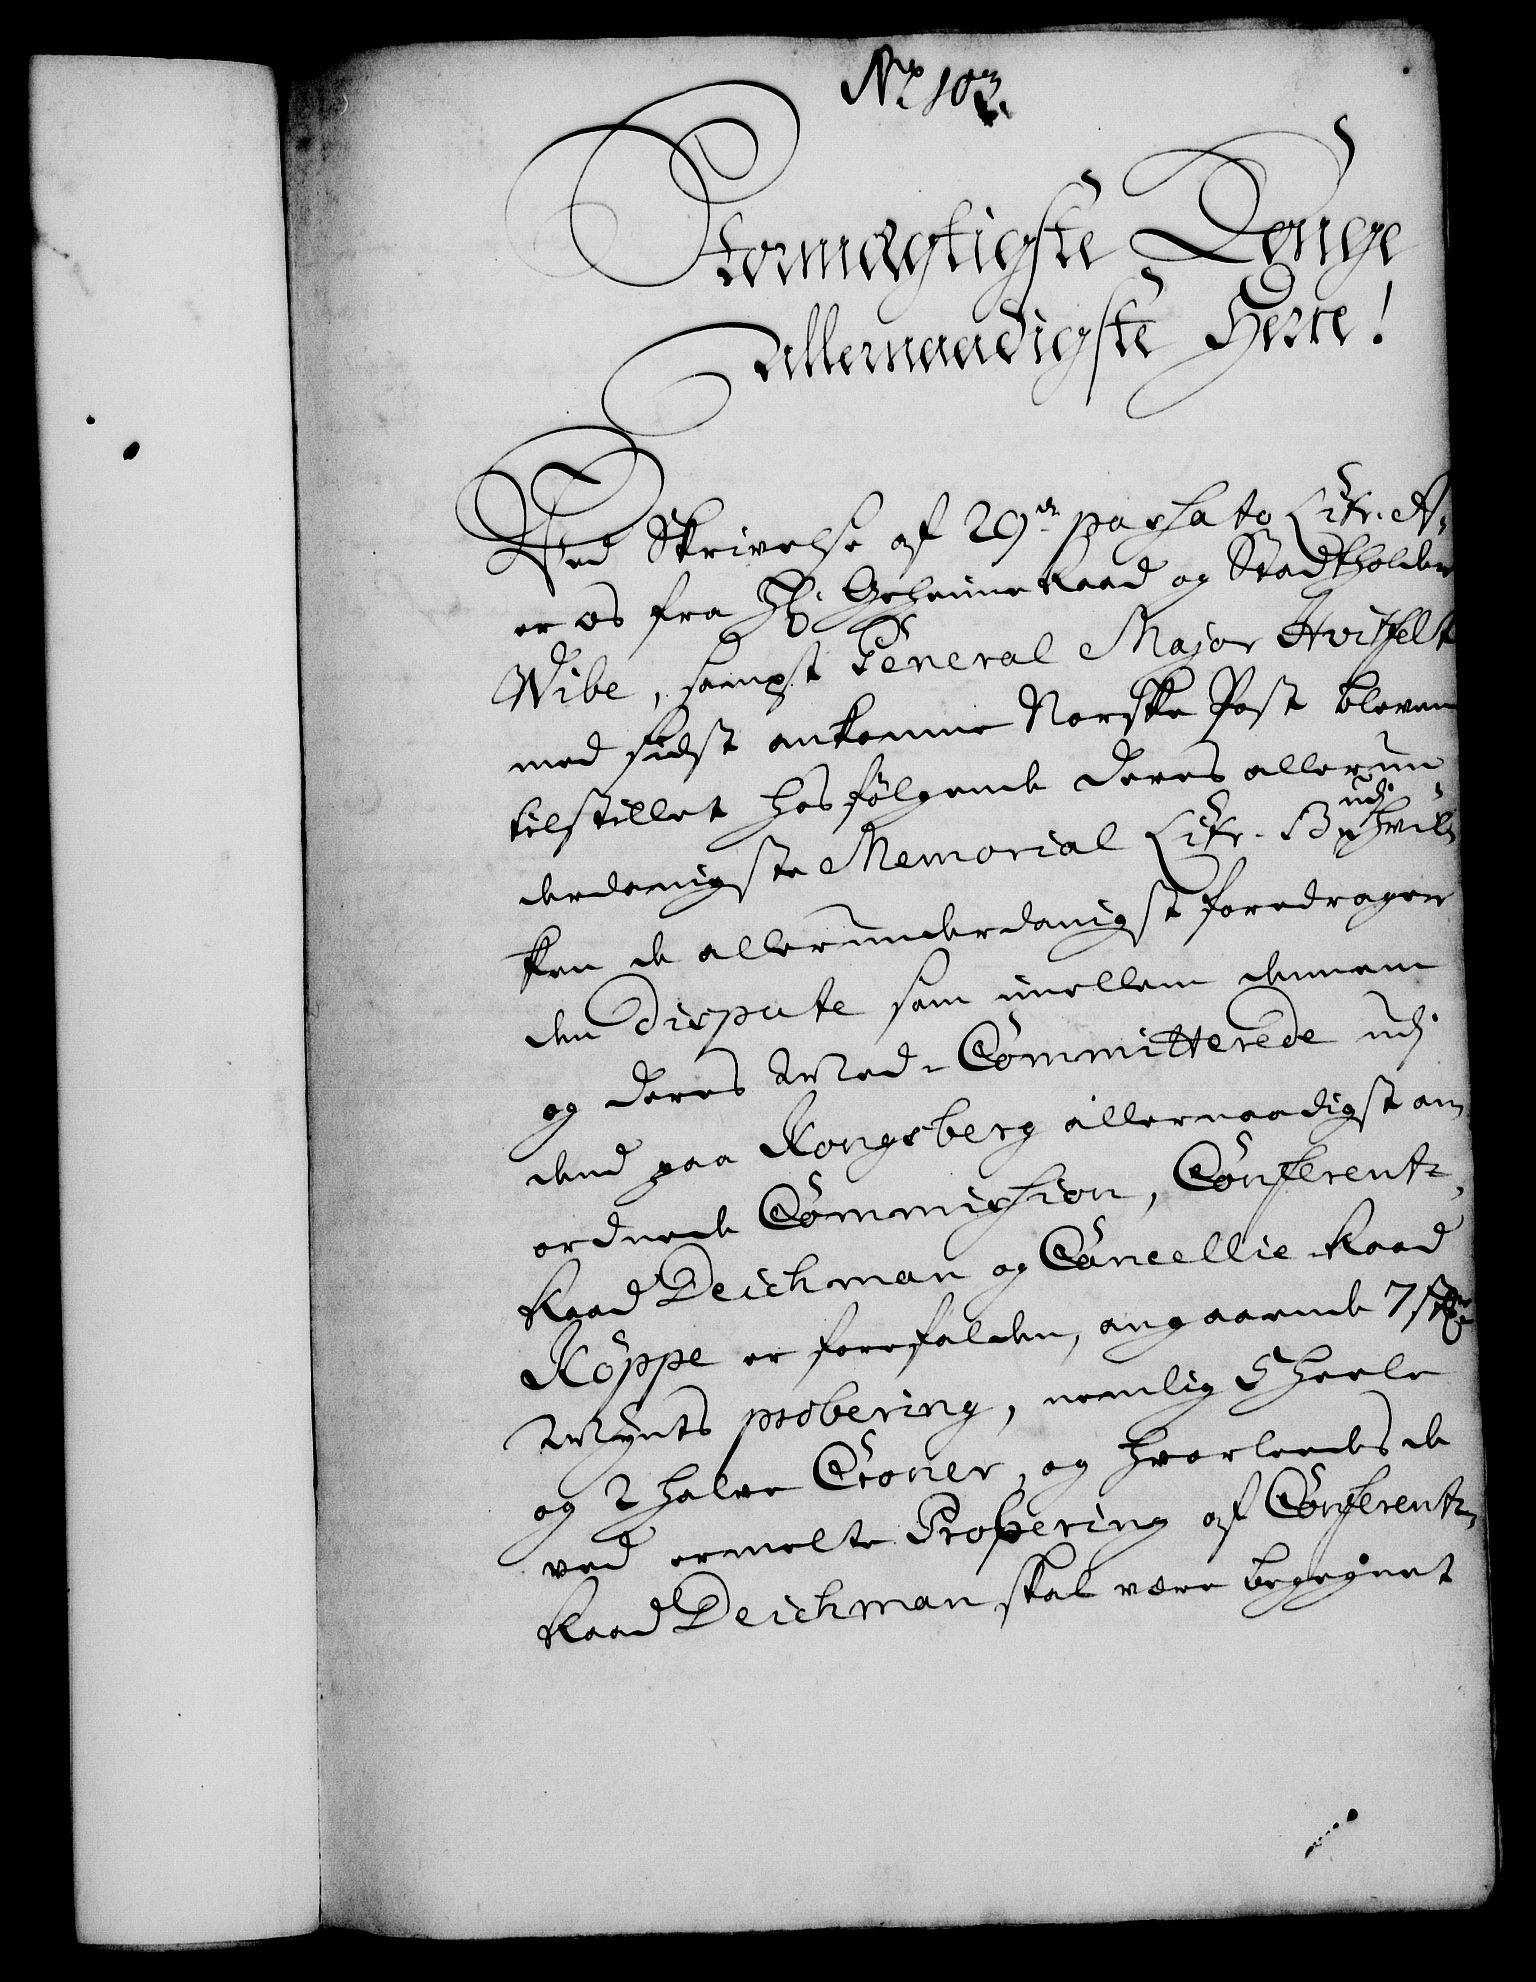 No 103.
Stormægtigste Konge
allernaadigste Herre!
Ved Skrivelse af 29de passato Litr. A.
er os fra Hr. Geheimeraad og Stadtholder
Wibe, sampt General Major Hvitfelt
med sidst ankomne Norske Post bleven
tilstillet hosfølgende deres allerun-
derdanigste Memorial Litr. B udj hvil-
ken de allerunderdanigst foredrager
den Dispute som imellem dennem
og deres Med-Committerede udj
dend paa Kongsberg allernaadigst an-
ordnede Commission, Conferentz-
Raad Deichman og Cancellie-Raad
Köppe er forefalden, angaaende 7 stkr
Mynts probering, nemlig 5 heele
og 2 halve Croner, og hvorleedes de
ved ermelte Probering af Conferentz-
Raad Deichman skal være begegnet